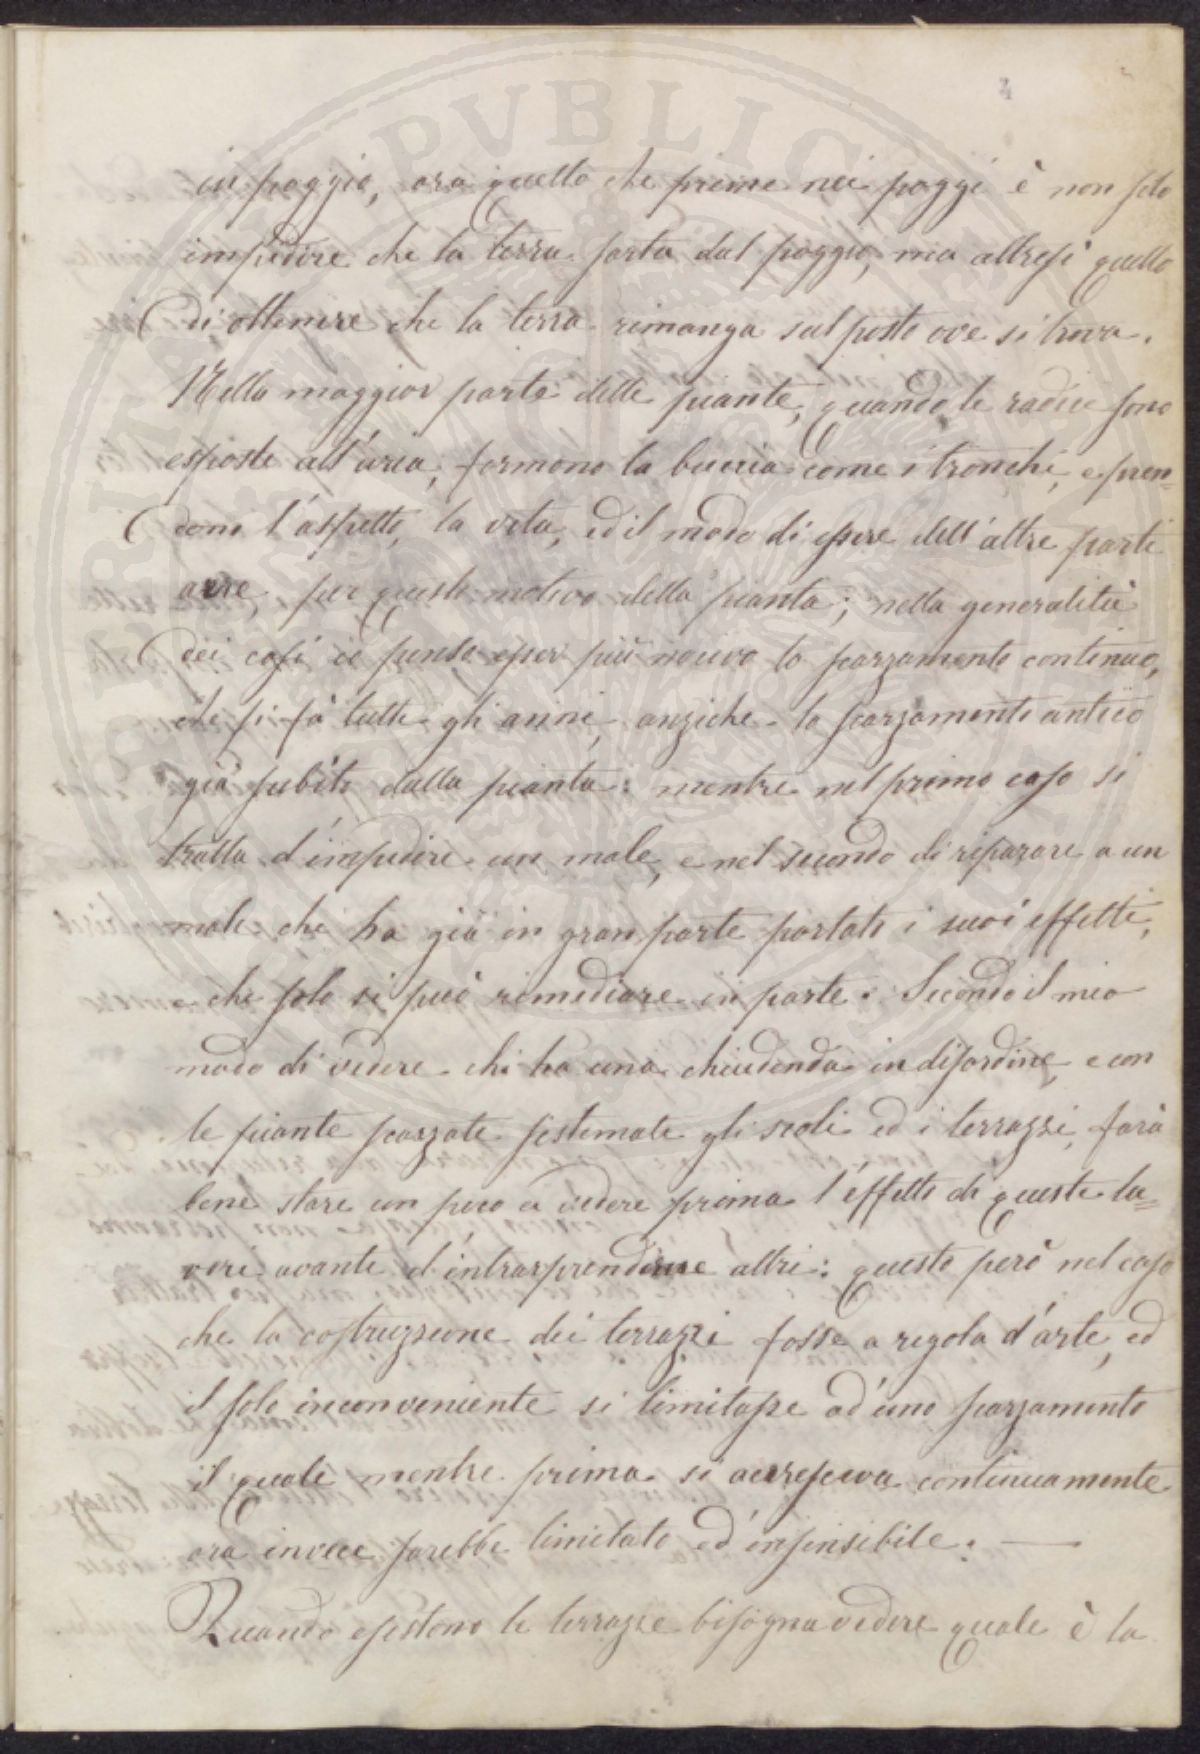 4
in poggio, ora quello che preme nei poggi è non solo
impedire che la terra parta dal poggio, ma altresì quello
di ottenere che la terra rimanga sul posto ove si trova.
Nella maggior parte delle piante, quando le radici sono
esposte all'aria, formono la buccia come i tronchi, e pren=
dono l'aspetto, la vita, ed il modo di essere dell'altre parti
aeree, per questo motivo della pianta; nella generalità
dei casi io penso esser più nocivo lo scarzamento continuo,
che si fà tutti gli anni, anziche lo scarzamento antico
già subito dalla pianta: mentre nel primo caso si
tratta d'impedire un male, e nel secondo di riparare a un
male che ha già in gran parte portato i suoi effetti,
e che solo si può rimediare in parte. Secondo il mio
modo di vedere chi ha una chiudenda in disordine, e con
le piante scarzate sistemate gli scoli ed i terrazzi, farà
bene stare un poco a vedere prima l'effetto di questi la=
vori avanti d'intrarprenderne altri: questo però nel caso
che la costruzione dei terrazzi fosse a regola d'arte, ed
il solo inconveniente si limitasse ad'uno scarzamento
il quale mentre prima si accresceva continuamente
ora invece sarebbe limitato ed'insensibile. —
Quando esistono le terrazze bisogna vedere quale è la
PVBLIC